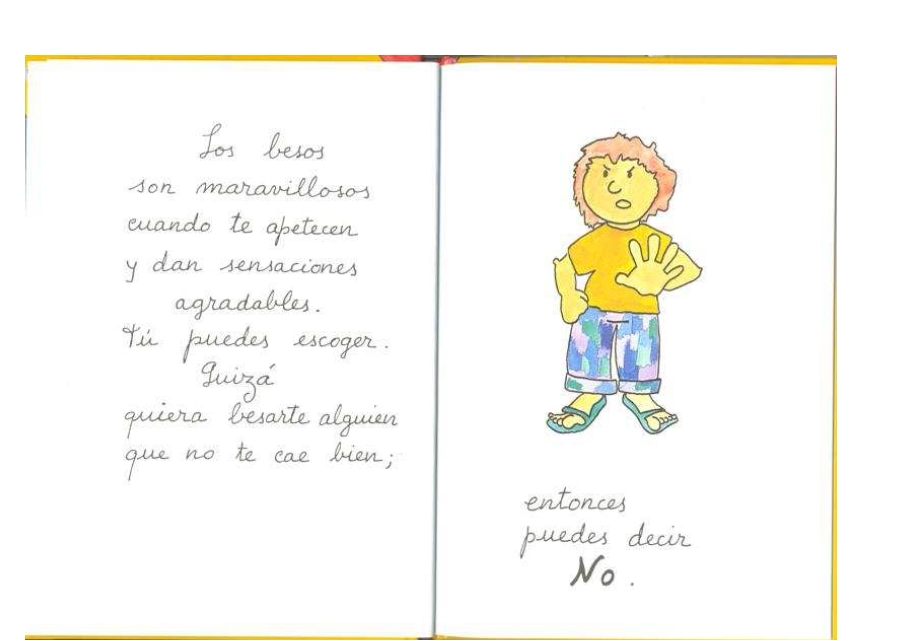 Los besos
son maravillosos
cuando te apetecen
y dan sensaciones
agradables.
Tú puedes escoger.
Quizá
quiera besarte alguien
que no te cae bien;
entonces
puedes decir
No.